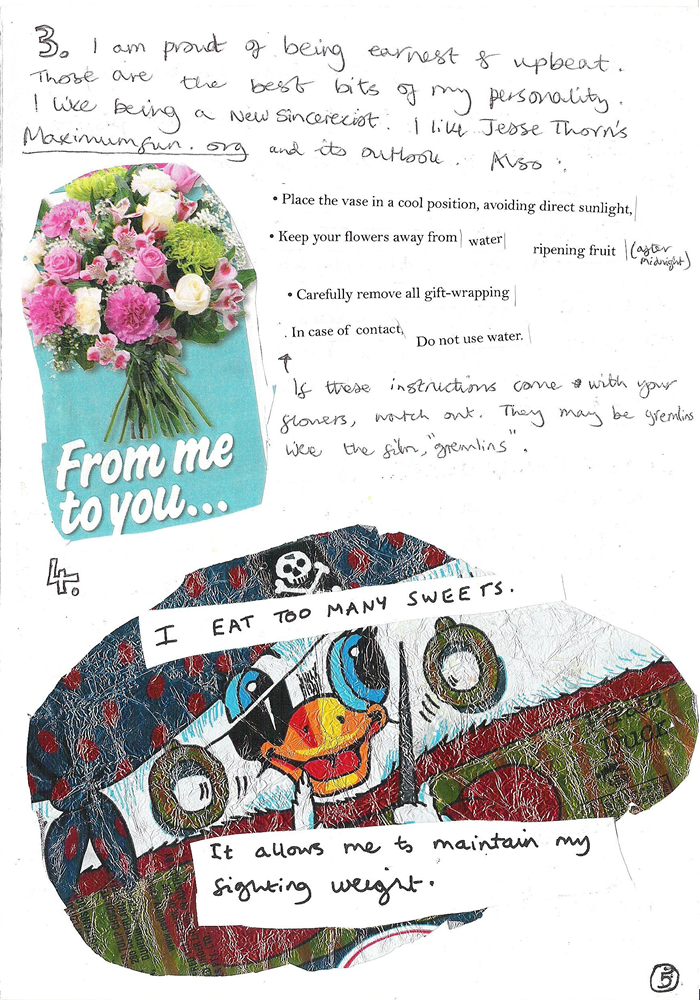 3. I am proud of being earnest & upbeat.
Those are the best bits of my personality.
I like being a New Sincerecist. I like Jesse Thorn's
Maximumfun.org and its outlook. Also:
• Place the vase in a cool position, avoiding direct sunlight,
• Keep your flowers away from water ripening fruit (after midnight)
• Carefully remove all gift-wrapping
. In case of contact, Do not use water.
If these instructions come with your
flowers, watch out. They may be gremlins
like the film, "gremlins".
From me
to you...
4.
I EAT TOO MANY SWEETS.
Duck
It allows me to maintain my
fighting weight.
5